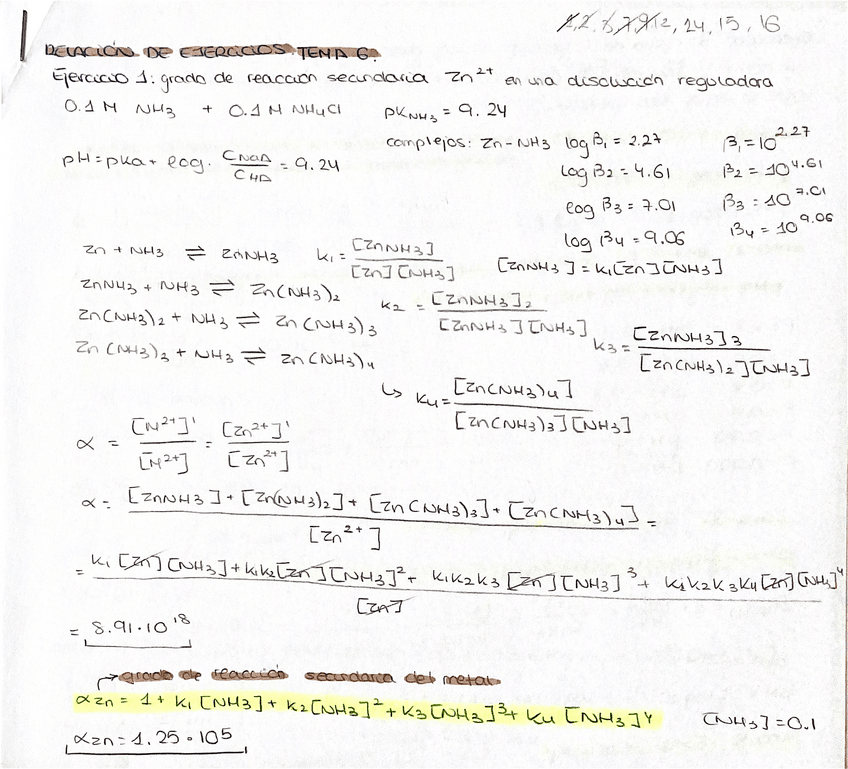 1, 2, 6, 7, 9, 12, 24, 15, 16
RELACIÓN DE EJERCICIOS TEMA 6.
Ejercicio 1: grado de reacción secundaria Zn²⁺ en una disolución reguladora
0.1 M NH3 + 0.1 M NH4Cl pK_NH3 = 9.24
complejos: Zn-NH3 log β1 = 2.27 β1 = 10^2.27
pH = pKa + log · C_NaA / C_HA = 9.24
log β2 = 4.61 β2 = 10^4.61
log β3 = 7.01 β3 = 10^7.01
log β4 = 9.06 β4 = 10^9.06
Zn + NH3 ⇌ ZnNH3 K1 = [ZnNH3] / [Zn][NH3] [ZnNH3] = K1[Zn][NH3]
ZnNH3 + NH3 ⇌ Zn(NH3)2 K2 = [ZnNH3]2 / [ZnNH3][NH3]
Zn(NH3)2 + NH3 ⇌ Zn(NH3)3 K3 = [ZnNH3]3 / [Zn(NH3)2][NH3]
Zn(NH3)3 + NH3 ⇌ Zn(NH3)4
↳ K4 = [Zn(NH3)4] / [Zn(NH3)3][NH3]
α = [M²⁺]' / [M²⁺] = [Zn²⁺]' / [Zn²⁺]
α = [ZnNH3] + [Zn(NH3)2] + [Zn(NH3)3] + [Zn(NH3)4] / [Zn²⁺] =
= K1[Zn][NH3] + K1K2[Zn][NH3]² + K1K2K3[Zn][NH3]³ + K1K2K3K4[Zn][NH3]⁴ / [Zn]
= 8.91·10¹⁸
→ grado de reacción secundaria del metal
αZn = 1 + K1[NH3] + K2[NH3]² + K3[NH3]³ + K4[NH3]⁴ [NH3] = 0.1
αZn = 1.25·10⁵